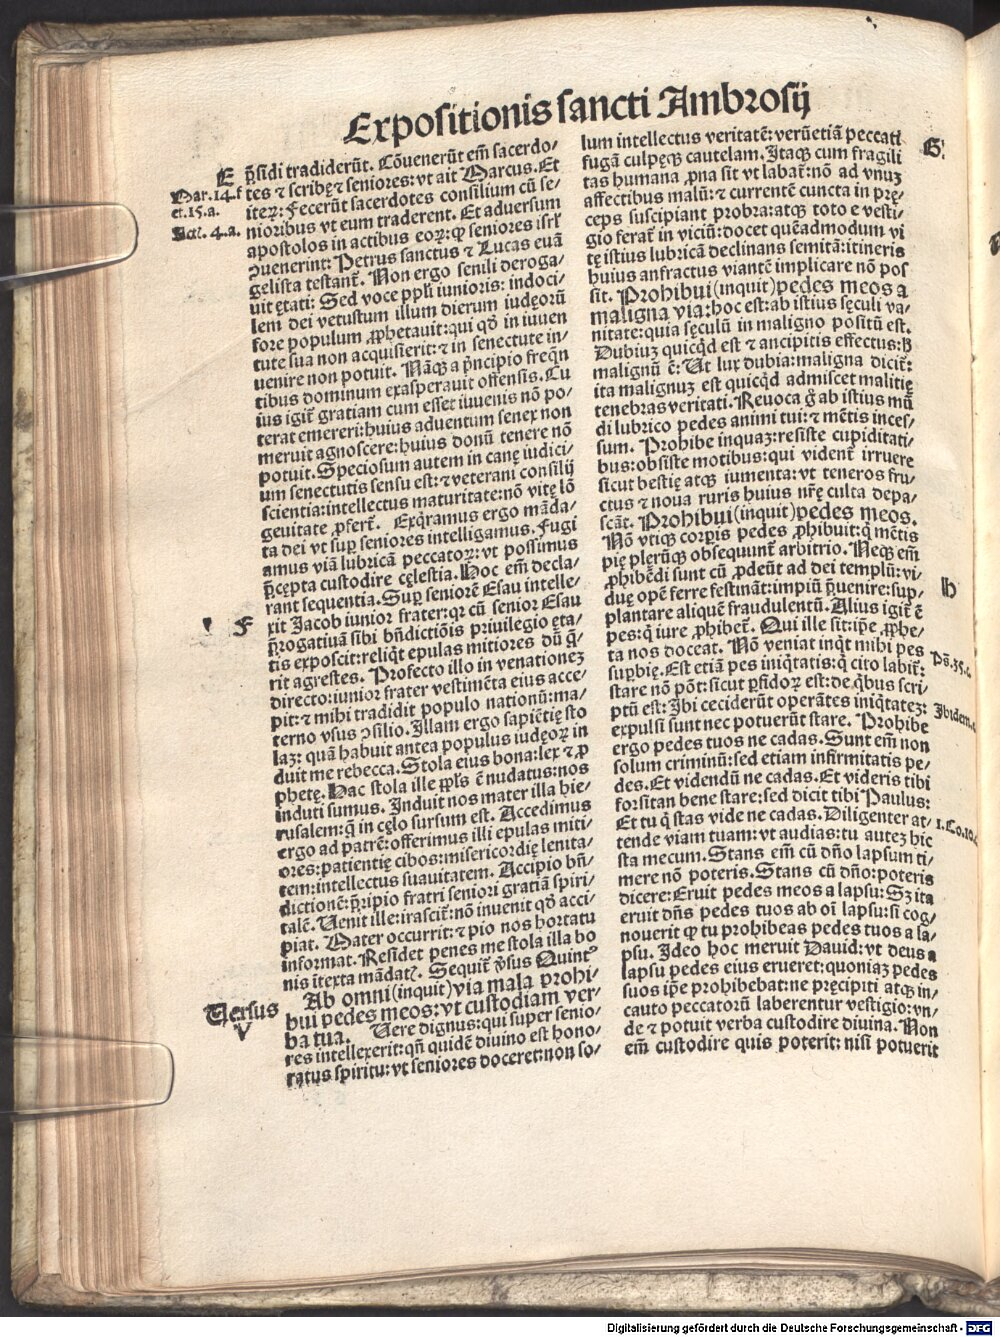 Expositionis sancti Ambrosij
E
Mar. 14. f
et. 15. a.
Act. 4. a.
p̄sidi tradiderūt. Cōuenerūt em̄ sacerdo⸗
tes ⁊ scribę ⁊ seniores: vt ait Marcus. Et
iteꝝ: Fecerūt sacerdotes consilium cū se⸗
nioribus vt eum traderent. Et aduersum
apostolos in actibus eoꝝ: ꝙ seniores isrl̄
ꝯuenerint: Petrus sanctus ⁊ Lucas euā
gelista testant᷑. Non ergo senili deroga⸗
uit ętati: Sed voce ppl̄i iunioris: indoci⸗
lem dei vetustum illum dierum iudęorū
fore populum ꝓphetauit: qui qd̄ in iuuen
tute sua non acquisierit: ⁊ in senectute in⸗
uenire non potuit. Nāqꝫ a p̄ncipio freqn̄
tibus dominum exasperauit offensis. Cu
ius igit᷑ gratiam cum esset iuuenis nō po⸗
terat emereri: huius aduentum senex non
meruit agnoscere: huius donū tenere nō
potuit. Speciosum autem in canę iudici⸗
um senectutis sensu est: ⁊ veterani consilij
scientia: intellectus maturitate: nō vitę lō
geuitate ꝓfert᷑. Exq̄ramus ergo māda⸗
ta dei vt suꝑ seniores intelligamus. Fugi
amus viā lubricā peccatoꝝ: vt possimus
p̄cepta custodire cęlestia. Hoc em̄ decla⸗
rant sequentia. Suꝑ seniorē Esau intelle⸗
F
xit Jacob iunior frater: qꝛ cū senior Esau
p̄rogatiuā sibi bn̄dictiōis priuilegio ęta⸗
tis exposcit: reliqt epulas mitiores dū q̄⸗
rit agrestes. Profecto illo in venationeꝫ
directo: iunior frater vestimēta eius acce⸗
pit: ⁊ mihi tradidit populo nationū: ma⸗
terno vsus ꝯsilio. Illam ergo sapiētię sto
laꝫ: quā habuit antea populus iudęoꝝ in
duit me rebecca. Stola eius bona: lex ⁊ ꝓ
phetę. Hac stola ille ppl̄s ē nudatus: nos
induti sumus. Induit nos mater illa hie⸗
rusalem: q̄ in cęlo sursum est. Accedimus
ergo ad patrē: offerimus illi epulas miti⸗
ores: patientię cibos: misericordię lenita⸗
tem: intellectus suauitatem. Accipio bn̄⸗
dictionē: p̄ripio fratri seniori gratiā spiri⸗
talē. Uenit ille: irascit᷑: nō inuenit qd̄ acci⸗
piat. Mater occurrit: ⁊ pio nos hortatu
informat. Residet penes me stola illa bo
nis ītexta mādat᷑. Sequit᷑ ꝟsus Quintꝰ
Uersus
V
Ab omni (inquit) via mala prohi⸗
bui pedes meos: vt custodiam ver⸗
ba tua. Uere dignus: qui super senio⸗
res intellexerit: qn̄ quidē diuino est hono⸗
ratus spiritu: vt seniores doceret: non so⸗
lum intellectus veritatē: verūetiā peccati
G
fugā culpęqꝫ cautelam. Itaqꝫ cum fragili
tas humana ꝓna sit vt labat᷑: nō ad vnuꝫ
affectibus malū: ⁊ currentē cuncta in prę⸗
ceps suscipiant probra: atqꝫ toto e vesti⸗
gio ferat᷑ in viciū: docet quēadmodum vi
tę istius lubricā declinans semitā: itineris
huius anfractus viantē implicare nō pos
sit. Prohibui (inquit) pedes meos a
maligna via: hoc est: ab istius sęculi va⸗
nitate: quia sęculū in maligno positū est.
Dubiuꝫ quicqd est ⁊ ancipitis effectus: ꝫ
malignū ē: Ut lux dubia: maligna dicit᷑:
ita malignuꝫ est quicqd admiscet malitię
tenebras veritati. Reuoca g̊ ab istius mū
di lubrico pedes animi tui: ⁊ mētis inces⸗
sum. Prohibe inquaꝫ: resiste cupiditati⸗
bus: obsiste motibus: qui vident᷑ irruere
sicut bestię atqꝫ iumenta: vt teneros fru⸗
ctus ⁊ noua ruris huius nr̄ę culta depa⸗
scāt. Prohibui (inquit) pedes meos.
Nō vtiqꝫ corꝑis pedes ꝓhibuit: q̄ mētis
pię plerūqꝫ obsequunt᷑ arbitrio. Neqꝫ em̄
H
ꝓhibēdi sunt cū ꝓdeūt ad dei templū: vi⸗
duę opē ferre festināt: impiū p̄uenire: sup⸗
plantare aliquē fraudulentū. Alius igit᷑ ē
pes: q̄ iure ꝓhibet᷑. Qui ille sit: ip̄e ꝓphe⸗
Ps. 35. c.
ta nos doceat. Nō veniat inqt mihi pes
suꝑbię. Est etiā pes iniqtatis: q̄ cito labit᷑:
stare nō pōt: sicut ꝑfidoꝝ est: de qbus scri⸗
Ibidem.
ptū est: Ibi ceciderūt operātes iniqtateꝫ:
expulsi sunt nec potuerūt stare. Prohibe
ergo pedes tuos ne cadas. Sunt em̄ non
solum criminū: sed etiam infirmitatis pe⸗
des. Et videndū ne cadas. Et videris tibi
forsitan bene stare: sed dicit tibi Paulus:
1. Co. 10.
Et tu q̄ stas vide ne cadas. Diligenter at⸗
tende viam tuam: vt audias: tu auteꝫ hic
sta mecum. Stans em̄ cū dn̄o lapsum ti⸗
mere nō poteris. Stans cū dn̄o: poteris
dicere: Eruit pedes meos a lapsu: Sꝫ ita
eruit dn̄s pedes tuos ab oī lapsu: si cog⸗
nouerit ꝙ tu prohibeas pedes tuos a la⸗
psu. Ideo hoc meruit Dauid: vt deus a
lapsu pedes eius erueret: quoniaꝫ pedes
suos ip̄e prohibebat: ne pręcipiti atqꝫ in⸗
cauto peccatorū laberentur vestigio: vn⸗
de ⁊ potuit verba custodire diuina. Non
em̄ custodire quis poterit: nisi potuerit
Digitalisierung gefördert durch die Deutsche Forschungsgemeinschaft - DFG